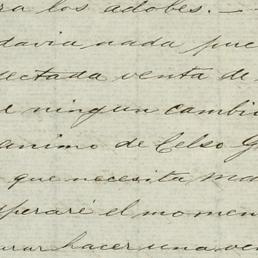 ra los adobes. —
davia nada pue
ectada venta de
ningun cambio
animo de Celso G
que necesita ma
speraré el momen
urar hacer una ve